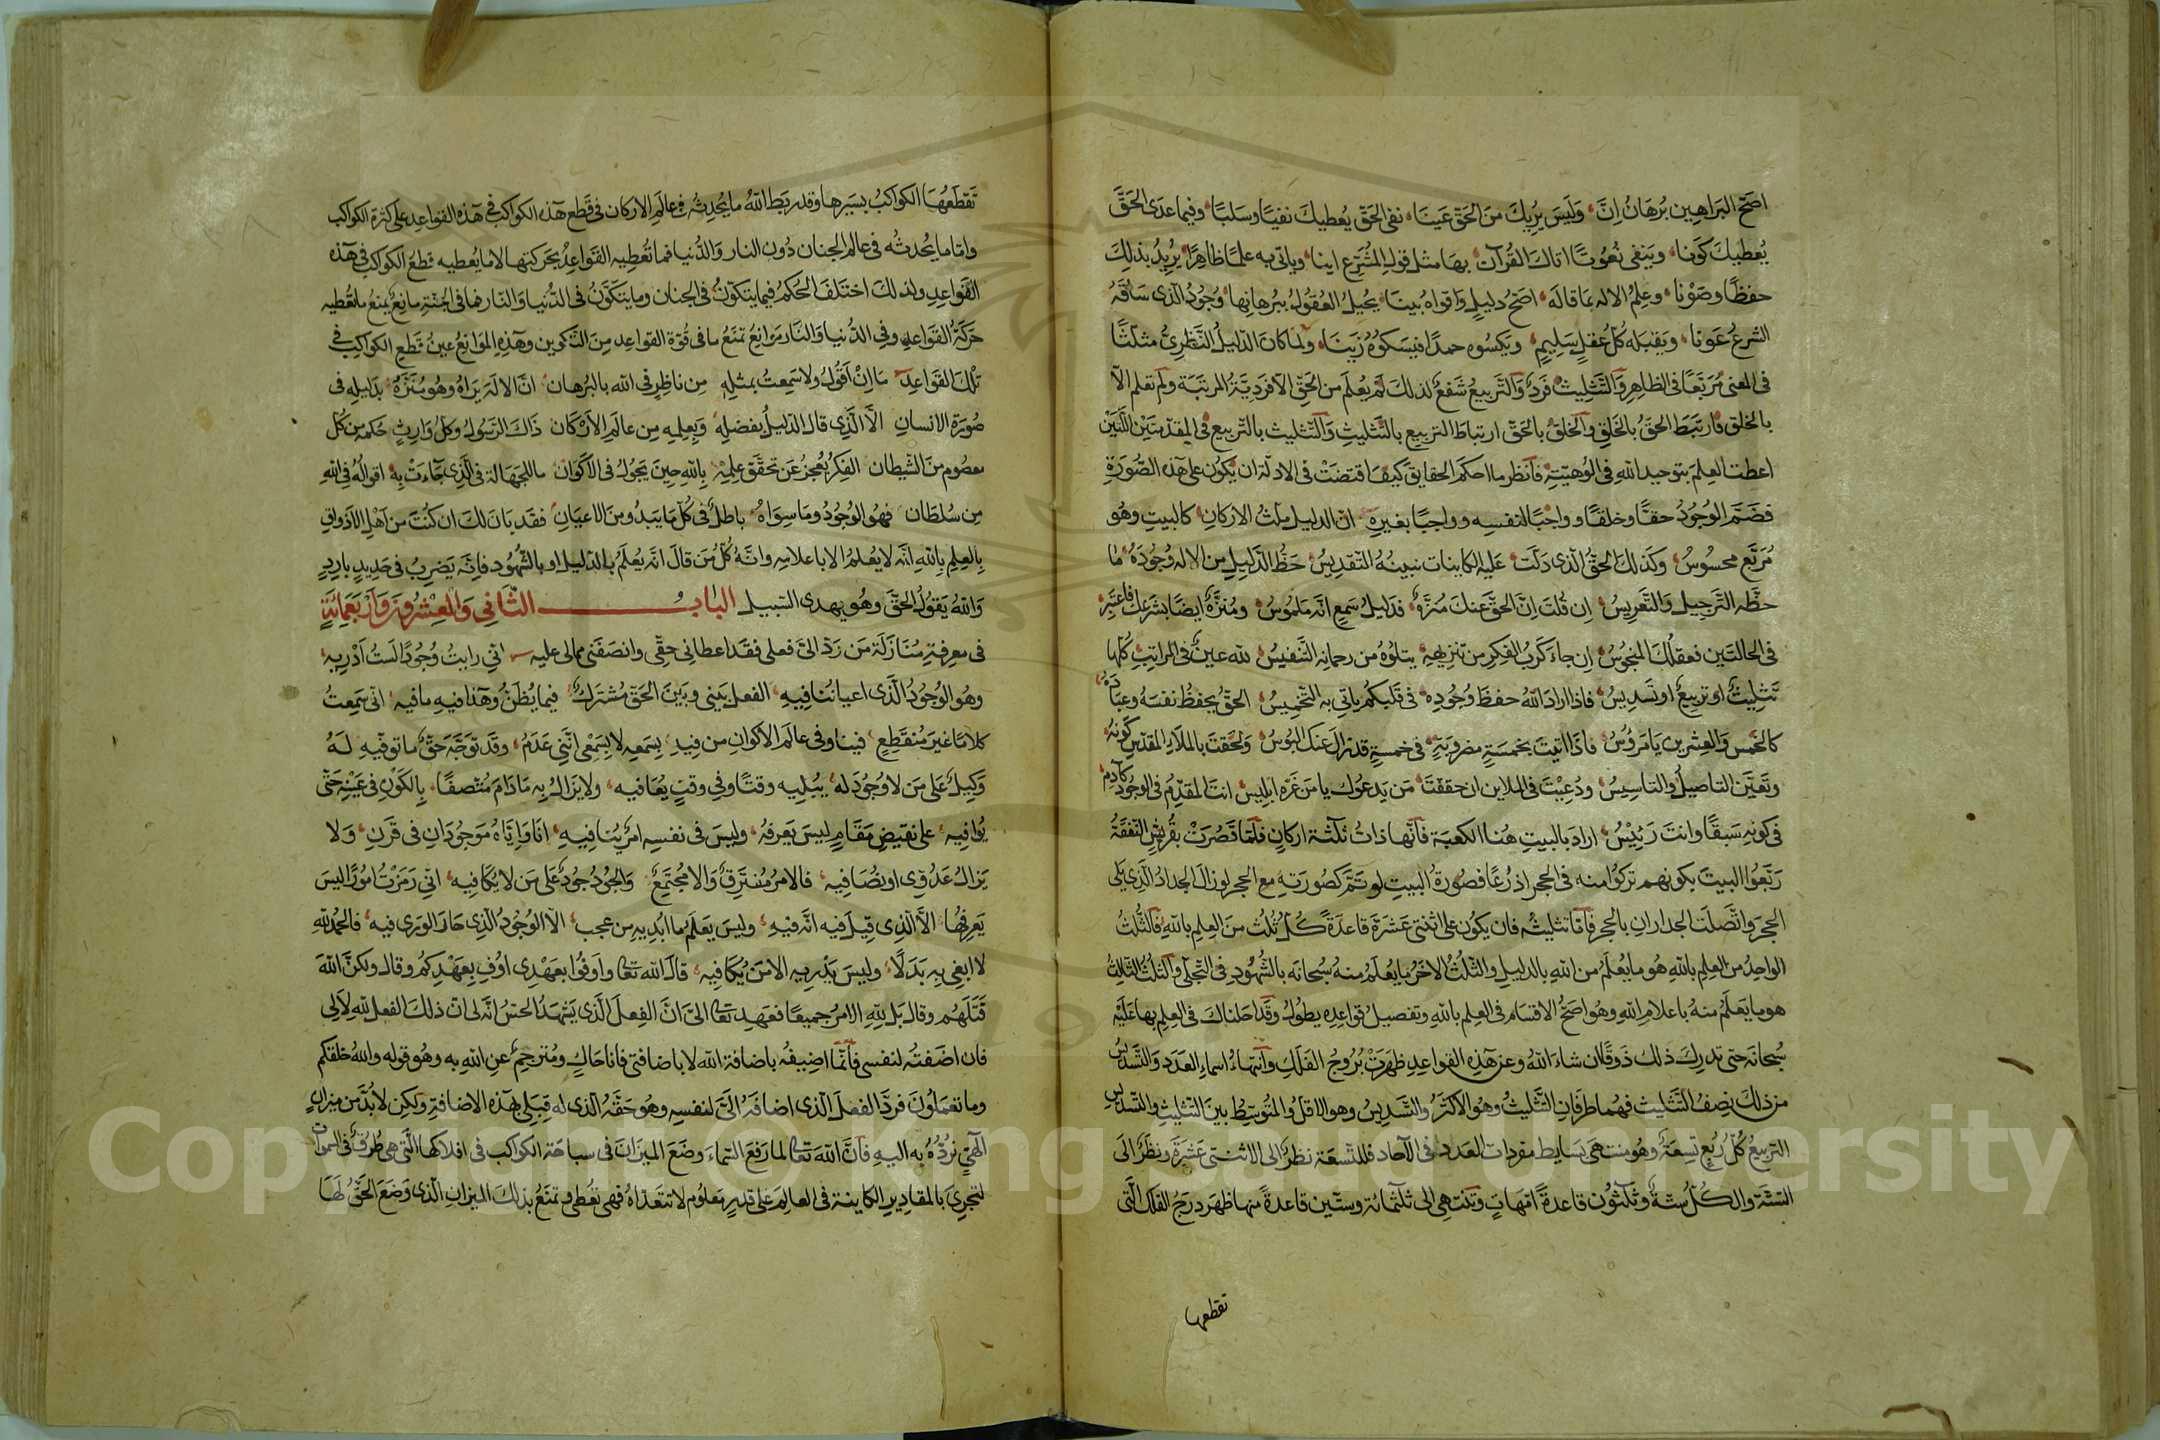 اصَحّ البَراهِين بُرهَانُ اِنَّ وَلَيسَ يرِيكَ مِنَ الحَقّ عَينَا نفى الحَقّ يُعطِيكَ نفيًا وسَلبًا وفيما عدَى الحَقَّ
يُعْطِيكَ كَونا وينفى نُعُوتًا اتاكَ القُرآن بها مثل قولِ المُشَرّع اينا وياتى به علمًا ظاهِرًا يُرِيدُ بذلِكَ
حفظًا وصَوْنا وعِلمُ الاله بمَا قالَه اصَحُّ دليلٍ واقواهُ بينَا يُحِيلُ العُقُولُ ببُرهانِها وُجُودُ الّذى سَاقَهُ
الشرعُ عَونا ويَقبَله كُلُّ عَقلٍ سَلِيمٍ ويَكسُوه حمدًا فيَسكوُهُ زَينَا ولمّا كانَ الدّليلُ النَّظَرِىُّ مثلّثًا
فى المعنى مُرَبّعًا فى الظاهِرِ وَالتَّثلِيث فَردٌ والتَّربِيعُ شَفعٌ لذلكَ لَم يُعلَم من الحَقِّ الا فردِيَّةُ المرتَبَة ولَم تعلم الّا
بالخلق فارتبَطَ الحَقُّ بالخَلقِ والخَلقُ بالحَقّ ارتباطَ التربيع بالتَّثليثِ والتَّثليث بالتّربيع فى المقدّمتَيْن اللّتَيْن
اعطت العِلمَ بتوحيد الله فى الوُهيّتِهِ فانظر ما احكَمَ الحقايق كيفَ اقتضَتْ فى الادلّة ان يكُون على هذه الصُّورَةِ
فضَمَّ الوجُودُ حقًّا وخلقًا وواجبًا لنفسِه وواجبًا بغيرِهِ انّ الدليل مثلّثُ الاركانِ كالبيتِ وهُو
مُرَبَّع محسُوسُ وكذلكَ الحقُّ الّذى دَلّت عليه الكاينات نبينُهُ التَّقدِيسُ حَظُّ الدَّلِيلِ من الاله وُجُودُه مَا
حَظّه التَّرجيل والتَّعريسُ اِن قُلتَ اِنَّ الحَقَّ عنكَ منزّهٌ فدليلُ سَمعٍ انّه مَلمُوسُ ومُنزَّهٌ ايضًا بشَرعكَ فاعتبِر
فى الحالتَين فعقلُكَ المنجوُسُ اِن جاءَ كَربُ الفكرِ من تنزيهِهِ يتلوُهُ من رحمانِه التَّنفيسُ لله عينٌ فى المراتِبِ كلّها
تَثلِيثٌ او تربيعٌ او تسدِيسُ فاذا ارادَ اللهُ حفظَ وُجُودِه فى قلبكُم ياتى به التَّخميسُ الحقُّ يحفظُ نفسَهُ وعبادَهُ
كالخَمسِ والعِشرِين يا مَرؤُسُ فاذا اتيتَ بخَمسَةٍ مضروبَةٍ فى خمسَةٍ قد زالَ عنكَ البُوسُ ولحقتَ بالملاءِ المقدّسِ كَونهُ
وتعيّنَ التاصيلُ والتاسِيسُ ودُعِيتَ فى الملاين ان حققتَ مَن يَدعوُك يا مَن غرّهُ ابليسُ انتَ المقدّمُ فى الوجُودِ كآدمٍ
فى كونِهِ سَبقًا وانتَ رَئِيسُ ارادَ بالبيتِ هُنا الكعبة فانّها ذاتُ ثلثة اركانٍ فلمّا قَصُرَتْ بقُريشٍ النَّفَقَةُ
رَبَّعوا البيتَ بكونهم تركوُا منه فى الحجر اذرُعًا فصُورَةُ البيتِ لو تَمَّ كصُورَتِهِ مع الحجر لوزالَ الجدارُ الّذى يلى
الحجرَ واتّصلَت الجدارانِ بالحجر فانّا تثليثُه فان يكوُن على اثنتى عَشرَةَ قاعدَةً كلّ ثُلُث منَ العِلمِ باللهِ فالثُّلثُ
الواحِدُ من العِلم بالله هُو ما يُعلَمُ من اللهِ بالدليلِ والثّلثُ الاخرُ ما يُعلَمُ منهُ سُبحانَه بالشُّهُودِ فى التّجلّى والثّلثُ الثالثُ
هو ما يَعلَمُ منهُ باعلامِ اللهِ وهُو اصَحُّ الاقسَام فى العِلمِ باللهِ وتفصيلُ قواعِدِه يطوُلُ وقَد احَلناكَ فى العِلمِ بها عَلَيْهِ
سُبحانَه حتى تدرِكَ ذلك ذَوقًا ان شاءَ اللهُ وعن هذِهِ القواعِدِ ظهَرَتْ بُرُوجُ الفَلَكِ وانتهاءُ اسماءِ العدَدِ والتَّسديسُ
من ذلكَ نِصفُ التَّثليث فهُما طرَفانِ التَّثليثُ وهُو الاكثَرُ والتَّسدِيسُ وهو الاقلُّ والمُتَوسِّطُ بينَ التّثليثِ والتّسديسِ
التربيعُ كُلُّ رُبعٍ تِسعَةٌ وهُو منتهى بَسَايِط مفرداتِ العدد فى الآحاد فللتّسعَة نظرٌ الى الاثنتى عَشَرَةَ ونظرٌ الى
السّتَّة والكُلّ ستّةٌ وثلثوُن قاعدةً امّهاتٍ وتنتهِى الى ثلثمائة وستّين قاعدةً منها ظهَر درَجُ الفلَك الّتى
تقطعها
تَقطَعُهَا الكواكبُ بسَيرها وقد ربَط اللهُ ما يُحدِثُه فى عالَمِ الاركان فى قَطعِ هذه الكواكب فى هَذه القواعِدِ على كثرةِ الكواكبِ
وامّا ما يُحدثُه فى عالمِ الجنان دُون النار والدُّنيا فما تُعطِيهِ القَواعِدُ بحَركتها لا ما يُعطِيه قطعُ الكواكبِ فى هَذه
القَواعِدِ ولذلكَ اختَلفَ الحُكمُ فيما يتكوّنُ فى الجنان وما يتكَوَّنُ فى الدُّنيا والنّار فما فى الجنّةِ مانِعٌ يمنَعُ ما تُعطيه
حَرَكةُ القَواعِدِ وفى الدُّنيا والنّار موانِعُ تمنَعُ ما فى قُوّة القواعِدِ مِنَ التَّكوِين وهَذِهِ المَوَانِعُ عينُ قَطعِ الكواكبِ فى
تلكَ القواعِدِ مَا اِنْ اَقوُلُ ولا سَمِعتُ بمثلِهِ مِن ناظِرٍ فى الله بالبُرهان انَّ الالهَ يَراهُ وهُو مُنَزَّهٌ بدَليلِهِ فى
صُورَة الانسانِ الّا الَّذِى قالَ الدّليلُ بفضلِهِ وبِعِلمِهِ مِن عالَمِ الاَرْكَانِ ذَاكَ الرَّسُولُ وكُلُّ وارِثٍ حُكمَه من كلّ
معصُومٍ منَ الشَّيطان الفِكرُ يُعجزُ عَن تحقّق عِلمِهِ بِاللهِ حِينَ يَجُولُ فى الاَكوَانِ ما للجَهالةِ فى الَّذِى جَاءَتْ بِهِ اقوالُهُ فى اللهِ
مِن سُلطَان فهُو الوجُودُ وما سِوَاهُ باطلٌ فى كُلّ ما يَبدُو منَ الاعيانِ فقَد بانَ لكَ ان كُنتَ من اَهلِ الاَذواقِ
بِالعِلمِ بِاللهِ انّه لا يُعلَمُ الا باعلامِهِ وانّهُ كُلُّ مَن قالَ انّه يُعلَمُ بالدّليلِ او بالشُّهُود فانّه يَضرِبُ فى حَدِيدٍ بارِدٍ
وَاللهُ يَقولُ الحَقَّ وهُو يهدى السّبيل البابُ الثّانِى وَالعِشرُونَ وَأَرْبَعُمِائَةٍ
فى معرِفةِ مُنَازَلَة مَن رَدّ الىَّ فعلى فقَد اعطانِى حقّى وانصَفَنى ممّا لى عليه انّى رايتُ وُجُودًا لَستُ اَدْرِيهِ
وهُو الوجُودُ الّذى اعيانُنا فِيهِ الفعلُ بينى وبَينَ الحَقّ مُشتَرَكٌ فيما يُظنُّ وهَذا فيه ما فيه انّى سَمِعتُ
كلامًا غيرَ مُنقَطِعٍ فينا وفى عالَمِ الاَكوانِ مِن فيه بِسَمعِه لا بسَمْعى انّنِى عَدَمٌ وقَد توَجَّهَ حَقٌّ ما توفّيهِ لَهُ
وَكِيلٌ عَلَى مَن لا وُجُودَ له يُبلِيه وقتًا وفى وقتٍ يُعافيه ولا يزالُ بِه مَادَامَ مُتّصفًا بِالكَونِ فى عَيْنِهِ حَتّى
يُوافِيهِ على نقيضِ مَقامٍ ليسَ يَعرفُهُ وليسَ فى نفسِهِ امرٌ يُنافِيهِ انَا وَاِيّاهُ مَوجُودَانِ فى قَرَنٍ وَلا
يَزالُ عَدُوّى او نُصَافِيهِ فالامرُ مُفتَرِقٌ وَالامرُ مُجتَمِعٌ وَالجُودُ جُودٌ عَلَى مَن لا يُكافِيهِ انّى رَمَزتُ امُورًا ليسَ
يَعرِفُهَا الّا الّذِى قِيلَ فيهِ انّه فيهِ وليسَ يَعلَمُ ما اُبدِيه مِن عَجبٍ الّا الوُجُودُ الّذِى حَارَ الورَى فيهِ فالحَمدُ للهِ
لا ابغِى بِه بَدَلًا وليسَ يَدرِيهِ الّا مَنْ يُكافِيهِ قالَ الله تعالى واَوفُوا بعَهْدِى اُوفِ بِعَهْدِكُم وقال ولكنَّ اللهَ
قَتَلَهُم وقال بَل للهِ الامرُ جميعًا فعَهِدَ تعالى الىَّ انَّ الفِعلَ الّذى يَشهَدُ الحِسُّ انّه لى انّ ذلكَ الفعلَ للهِ لاَ لِى
فان اضَفتُه لنفسى فانّما اضِيفُهُ باضافة الله لا باضافتى فانا حَاكٍ ومُترجِمٌ عنِ اللهِ به وهُو قوله واللهُ خلقكم
وما تعمَلُونَ فردَّ الفعلَ الّذى اضافَهُ الىَّ لنفسِهِ وهُو حَقّهُ الّذى له قِبَلِى بهَذِه الاضافةِ ولكِن لابُدَّ من ميزانٍ
اِلٰهىٍّ نُرُدُّهُ به اليهِ فانَّ اللهَ تعالى لمّا رفَعَ السّماءَ وضَعَ المِيزانَ فى سباحَة الكواكبِ فى افلاكها الّتى هى طُرُقٌ فى السّموات
لتجرِىَ بالمقادِيرِ الكاينة فى العالَمِ على قدرٍ مَعلُومٍ لا تتَعَدّاهُ فهى تُعطى وتمنَعُ بذلكَ الميزانِ الّذى وَضَعَ الحَقُّ لَها
Copyright © King Saud University